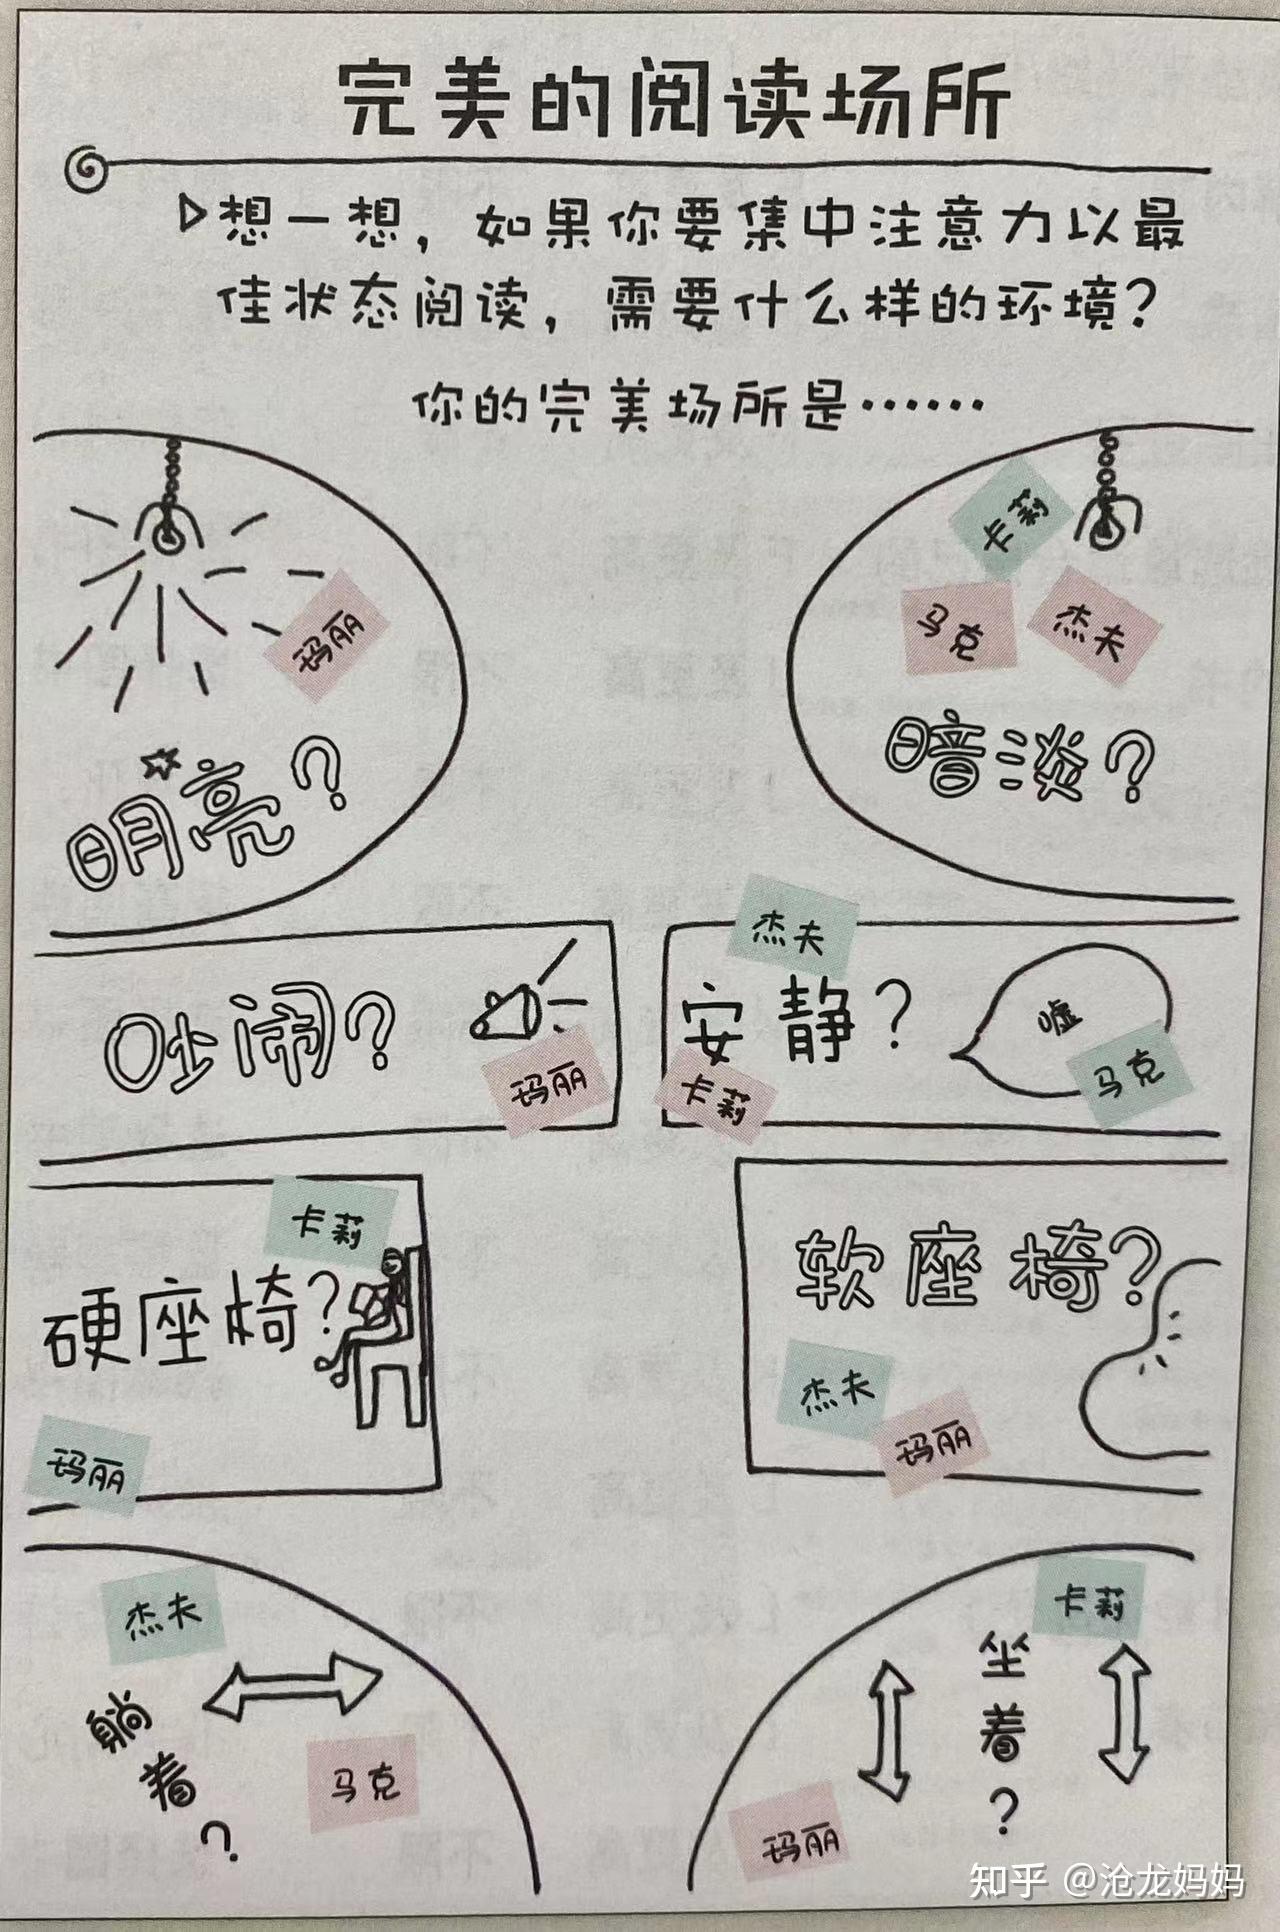 完美的阅读场所
想一想，如果你要集中注意力以最
佳状态阅读，需要什么样的环境？
你的完美场所是……
玛丽
明亮？
卡莉
马克
杰夫
暗淡？
吵闹？
玛丽
杰夫
安静？
嘘
马克
卡莉
卡莉
硬座椅？
玛丽
软座椅？
杰夫
玛丽
杰夫
躺着？
马克
卡莉
坐着？
玛丽
知乎 @沧龙妈妈